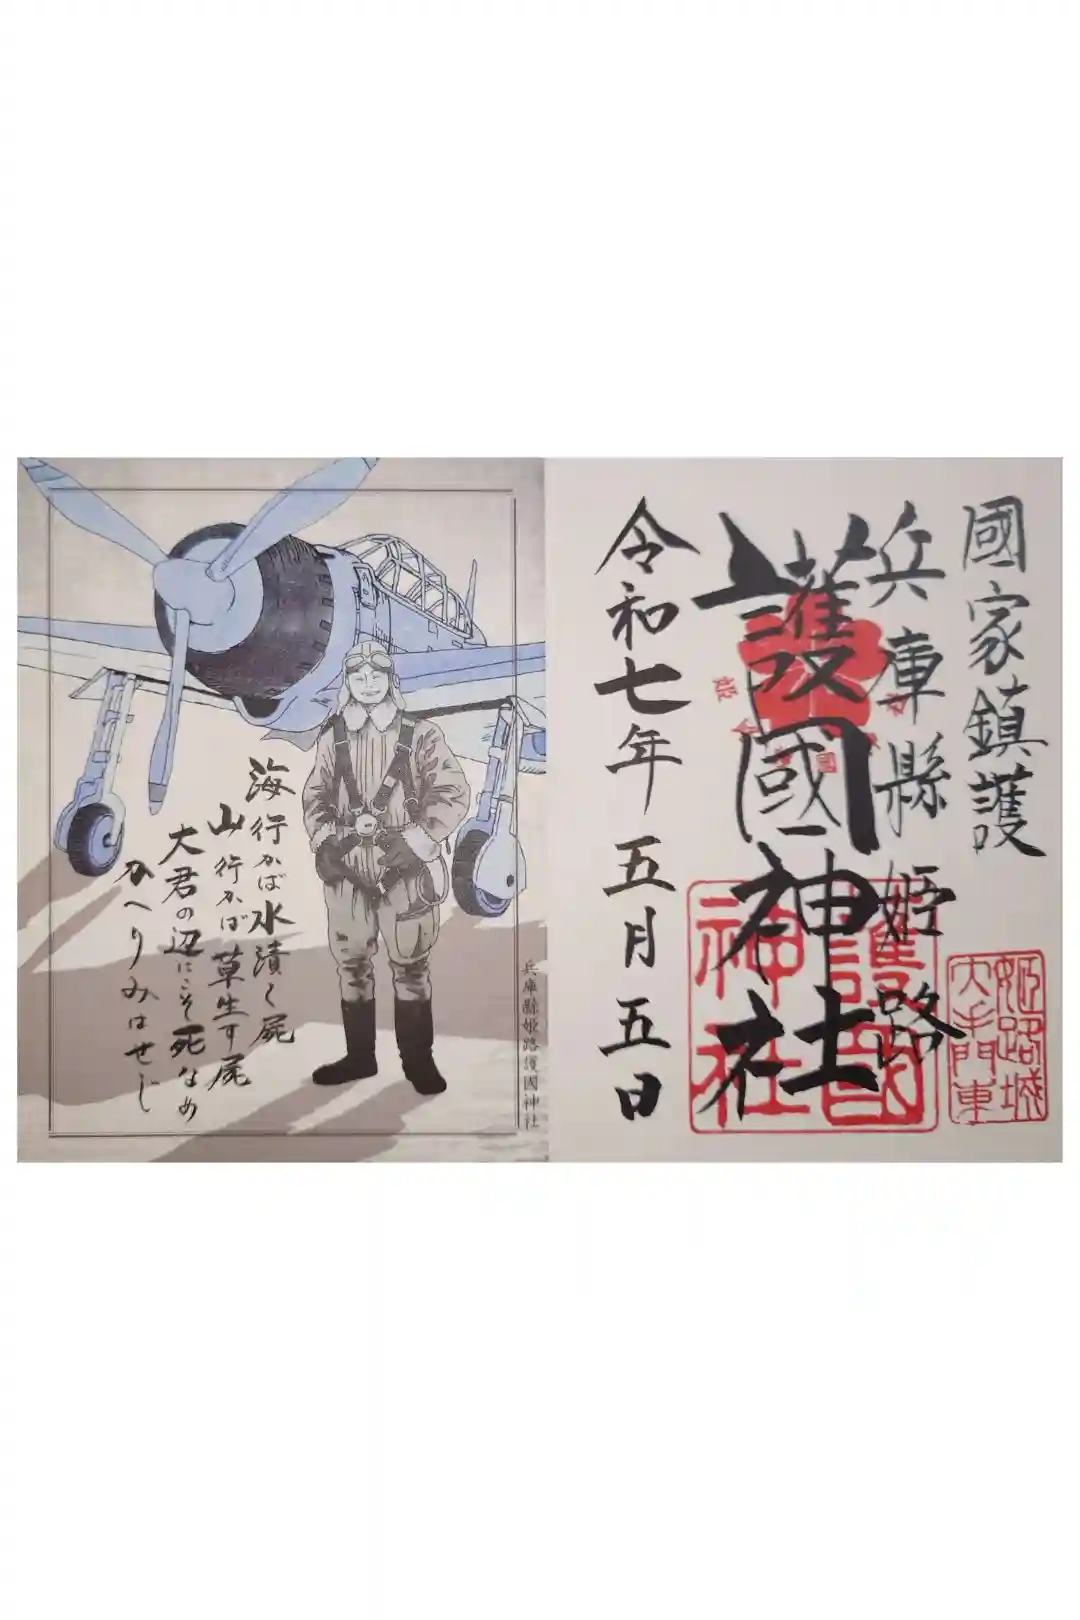 國家鎮護
兵庫縣姫路
護國神社
令和七年五月五日
護國
神社
姫路城
大手門東
海行かば水漬く屍
山行かば草生す屍
大君の辺にこそ死なめ
かへりみはせじ
兵庫縣姫路護國神社